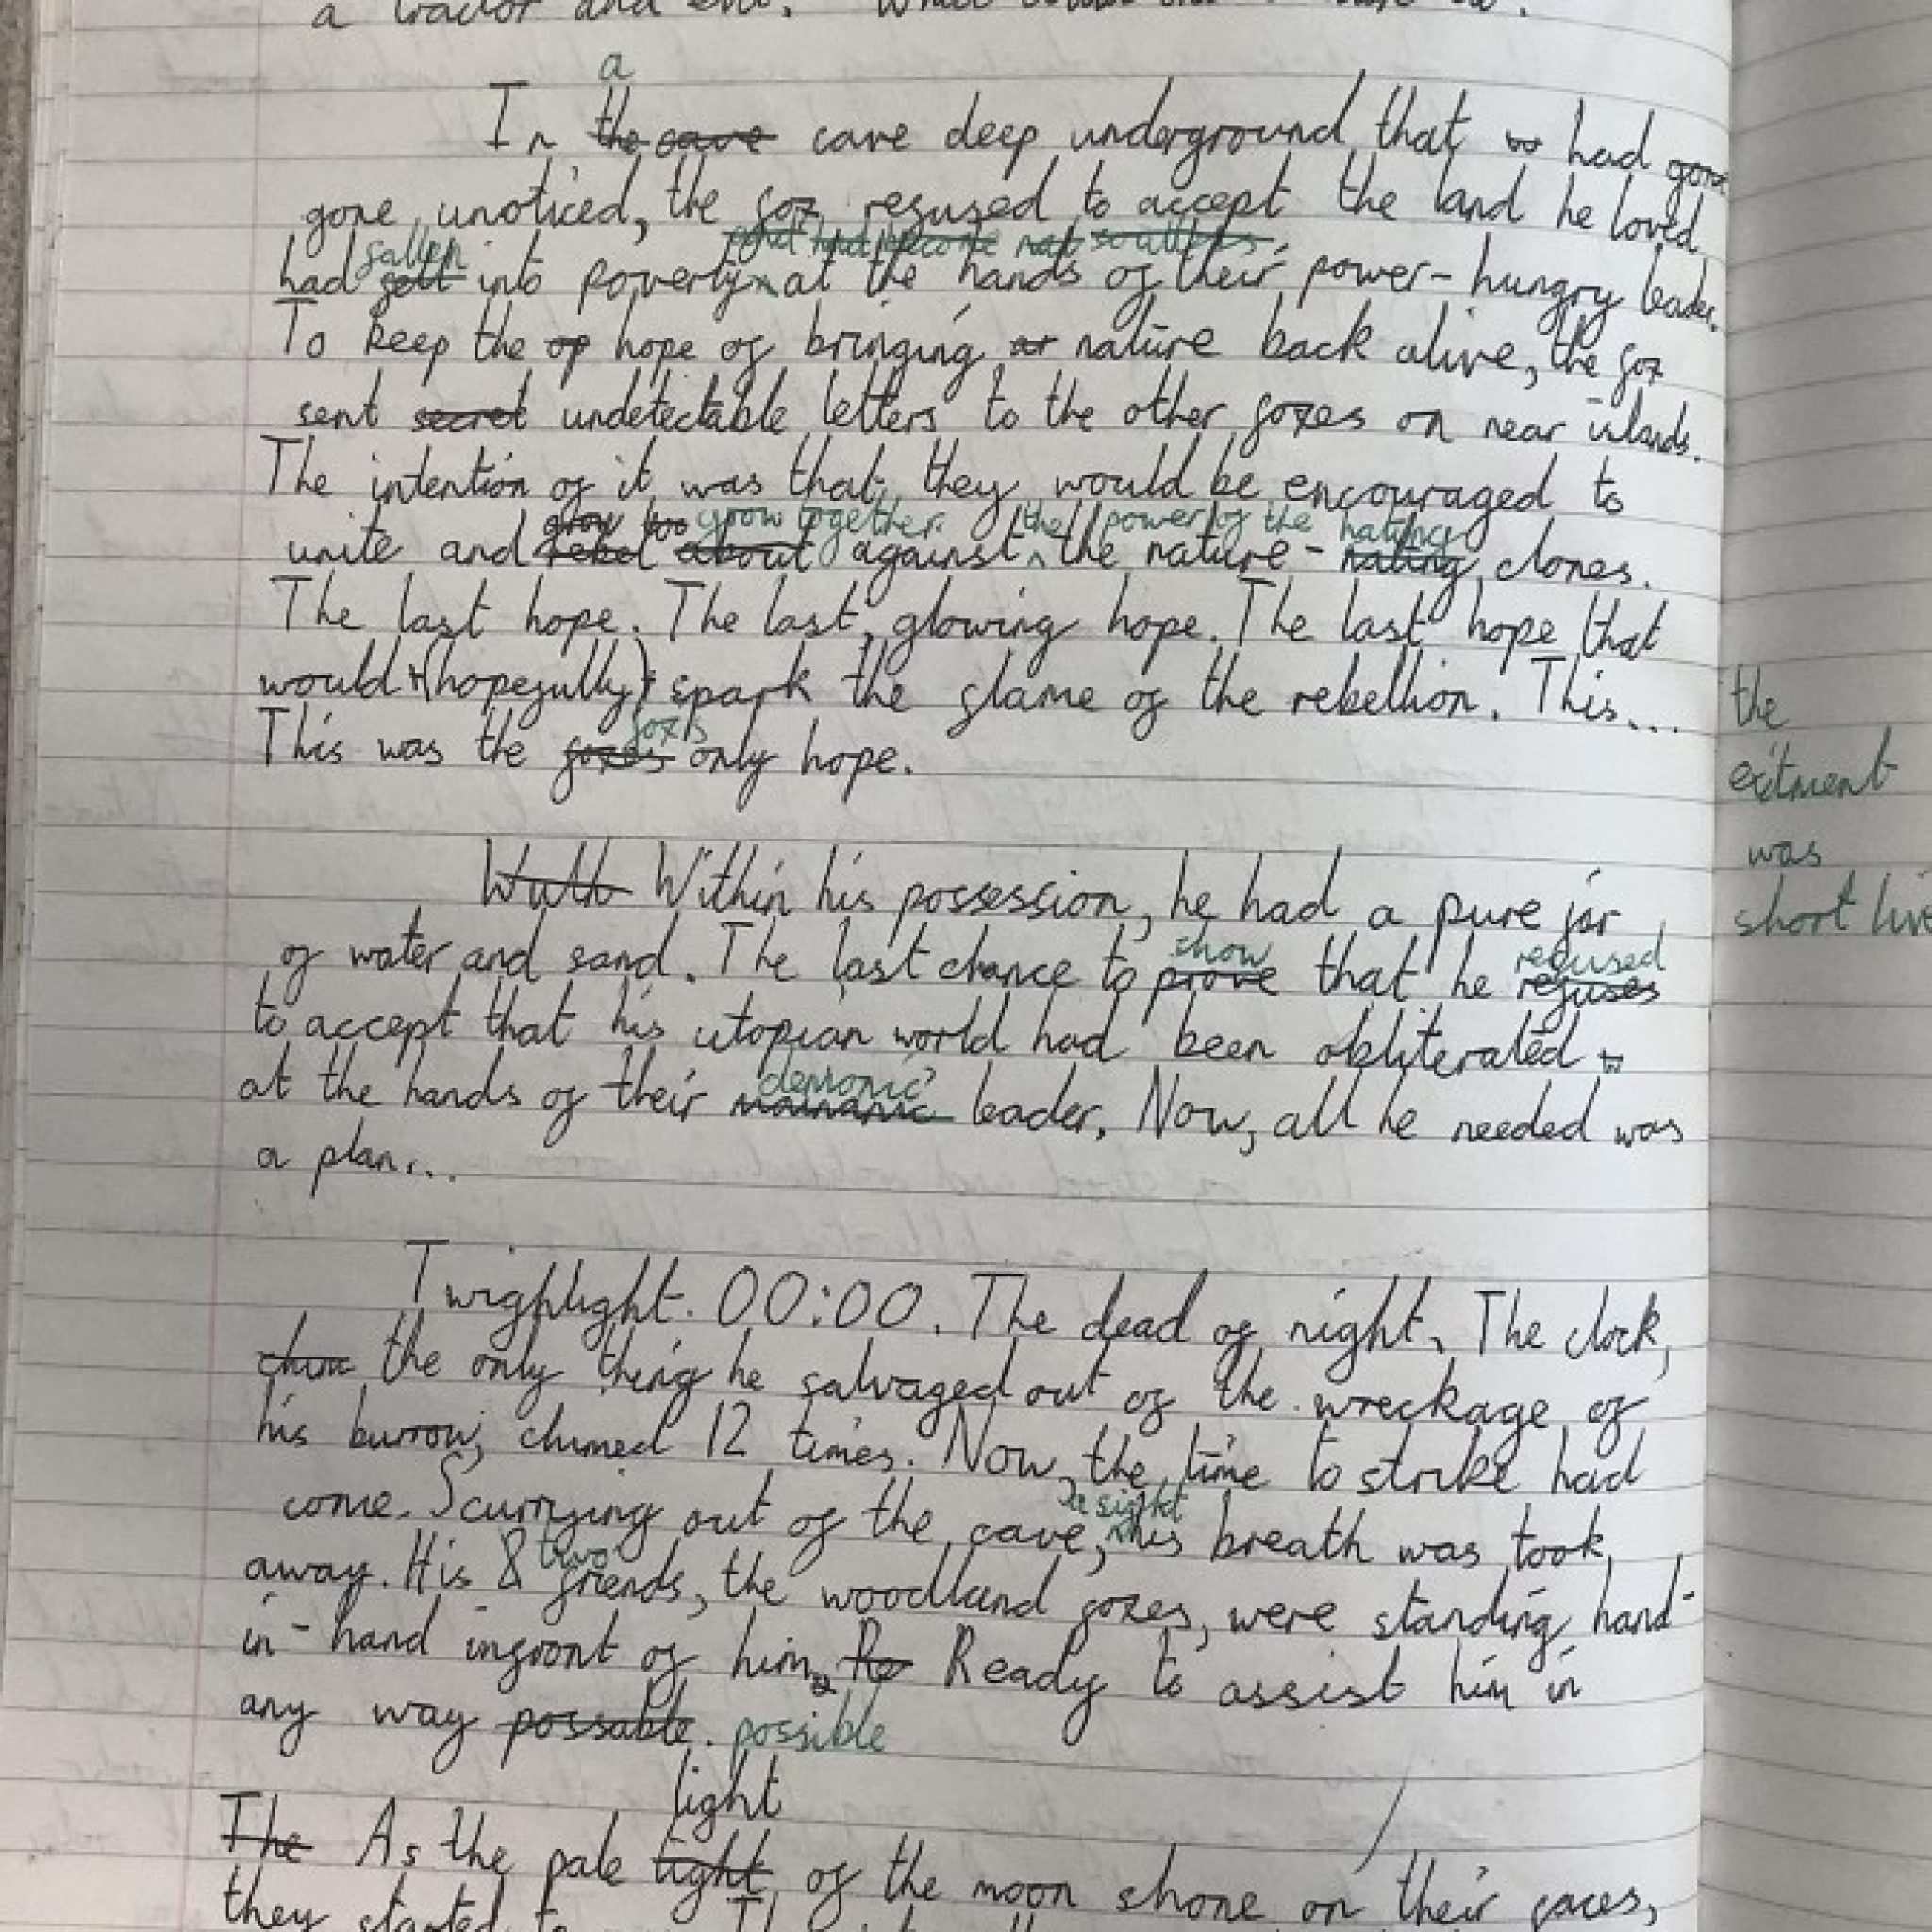 a tractor and
a
In the cave cave deep underground that had gone
gone unoticed, the fox refused to accept the land he loved
and had become scatters
fallen
had fell into poverty at the hands of their power-hungry leader.
To keep the op hope of bringing nature back alive, the fox
sent secret undetectable letters to the other foxes on near islands.
The intention of it was that they would be encouraged to
grow too grow together the power of the hating
unite and rebel about against the nature-hating clones.
The last hope. The last, glowing hope. The last hope that
would (hopefully) spark the flame of the rebellion. This...
fox's
This was the foxes only hope.
the
exitment
was
short live
Within his possession, he had a pure jar
show refused
of water and sand. The last chance to prove that he refuses
to accept that his utopian world had been obliterated
demonic
at the hands of their leader. Now, all he needed was
a plan...
Twighlight. 00:00. The dead of night. The clock,
the only thing he salvaged out of the wreckage of
his burrow, chimed 12 times. Now, the time to strike had
sight
come. Scurrying out of the cave, his breath was took
two
away. His 8 friends, the woodland foxes, were standing hand-
in-hand infront of him. Re Ready to assist him in
any way possable. possible
light
The As the pale light of the moon shone on their faces,
they started to